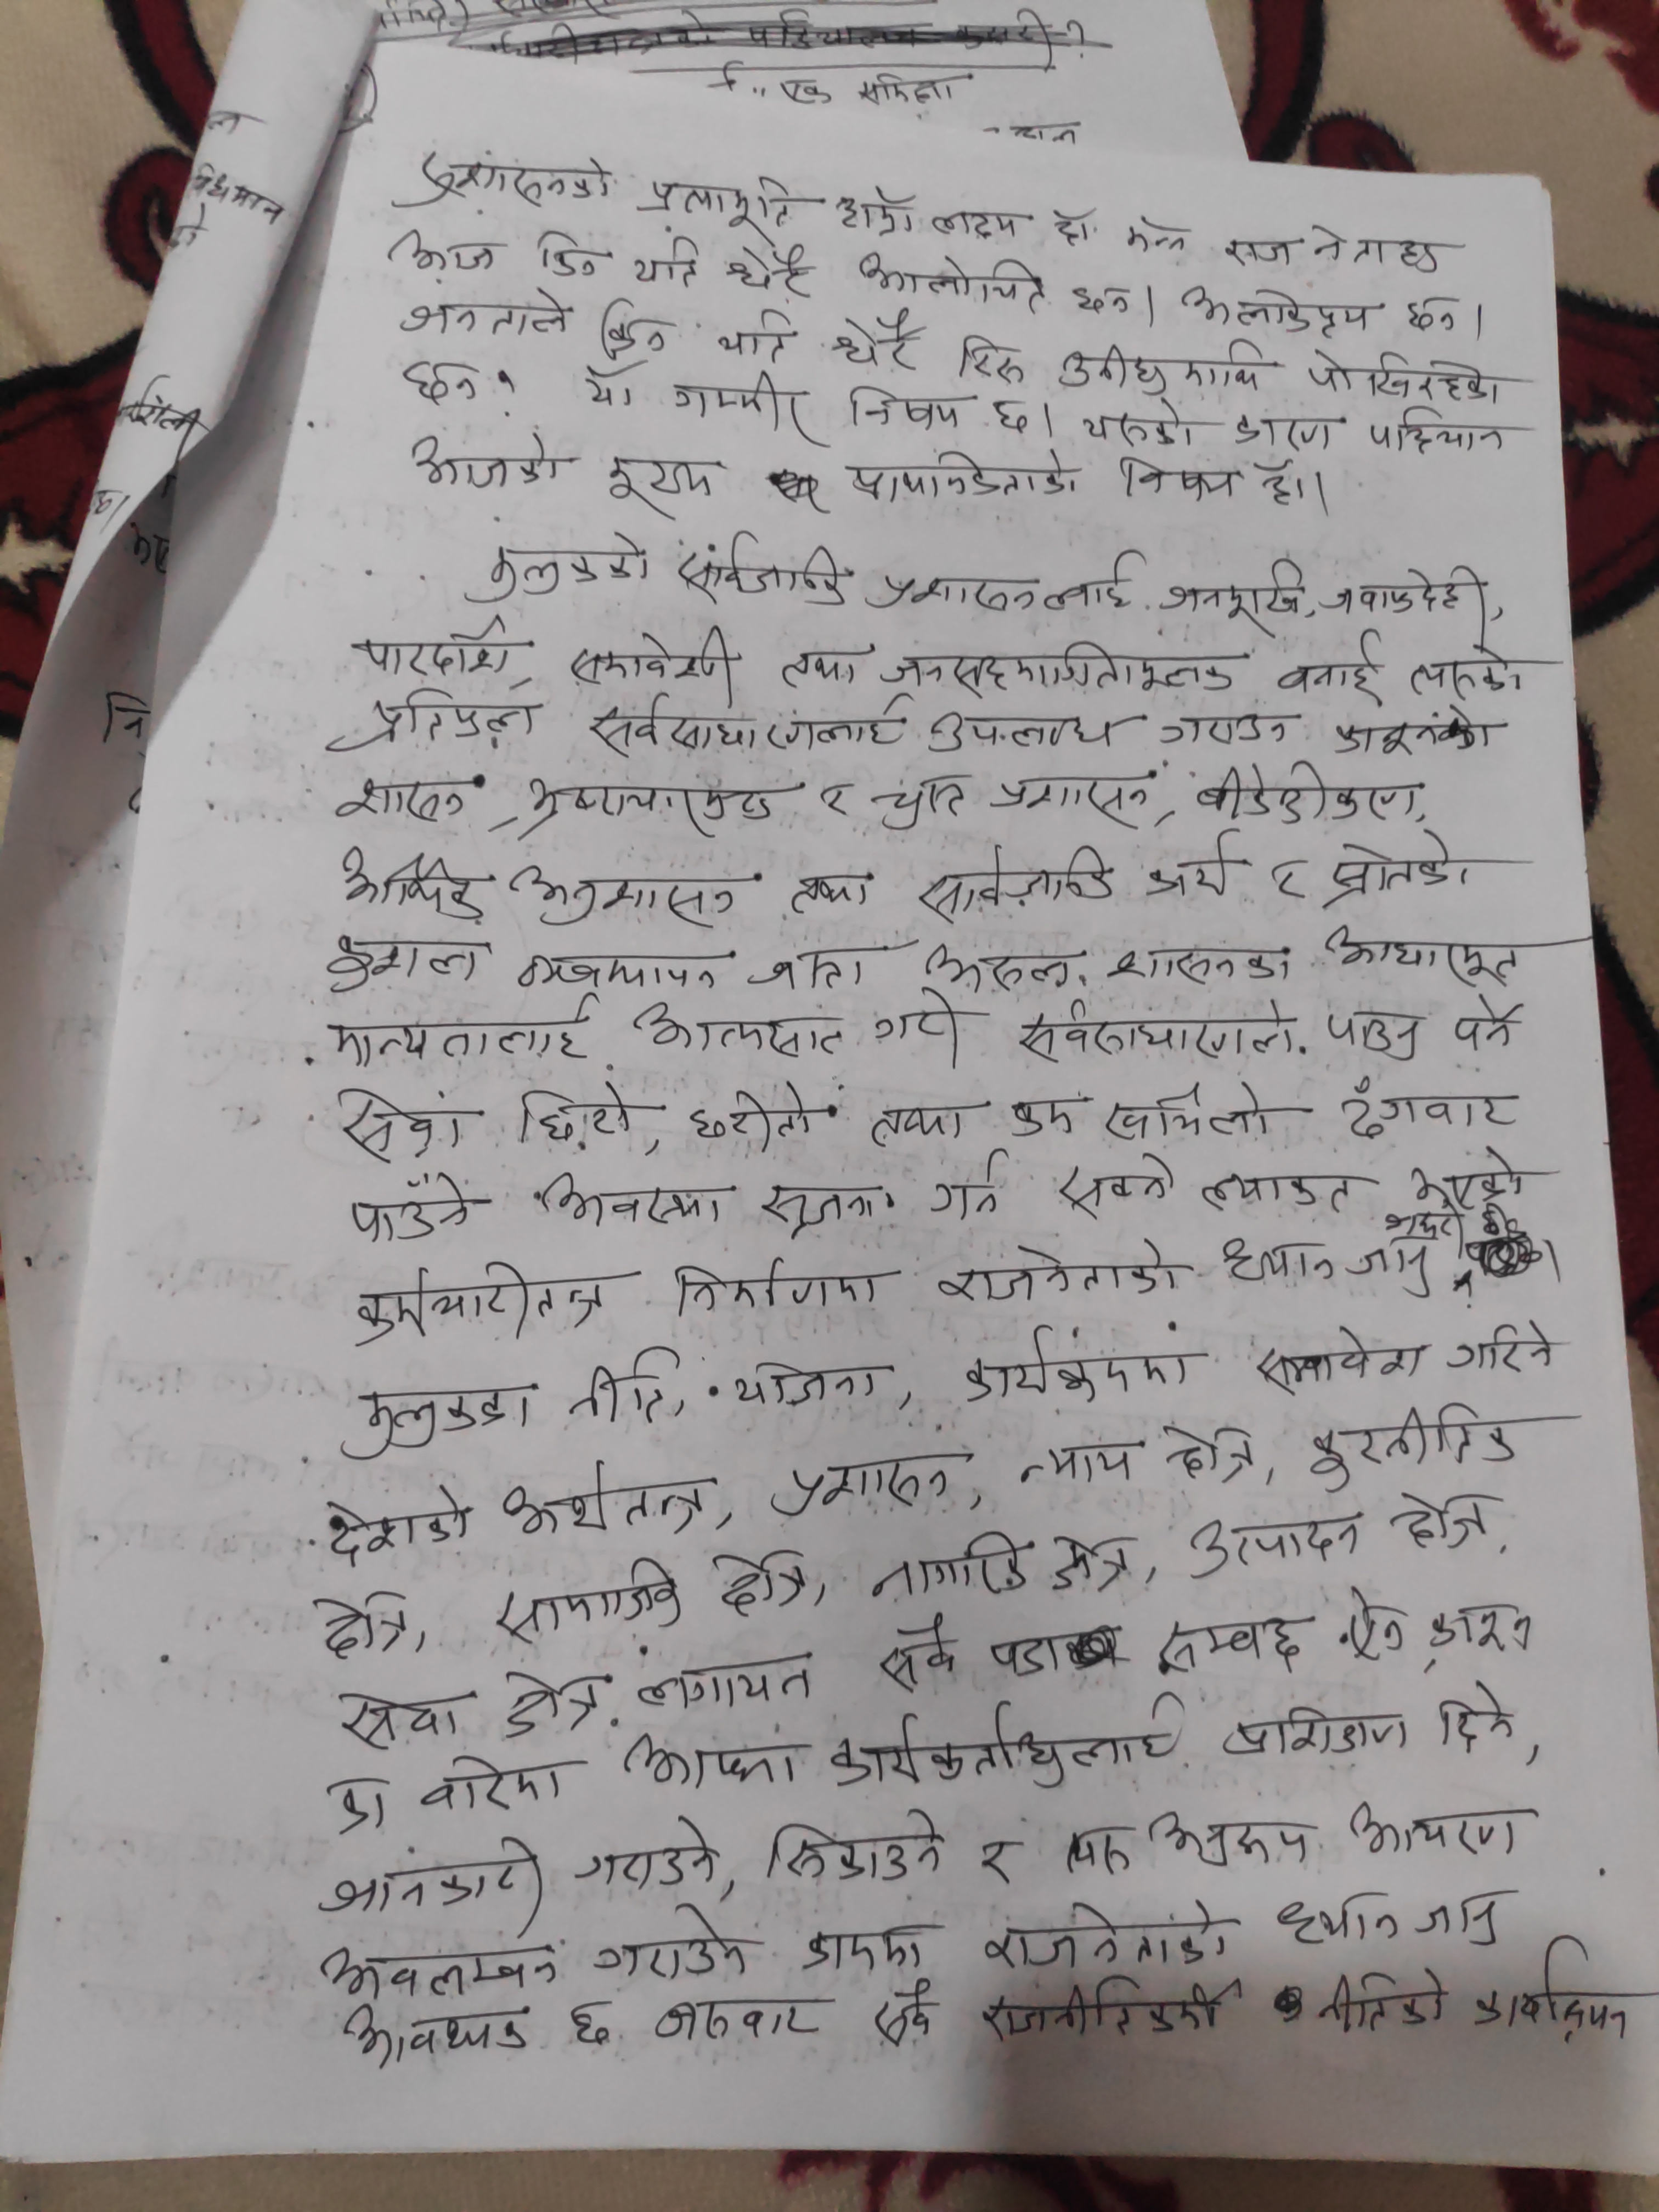 एक समिक्षा
सुशासनको प्रत्याभूति हाम्रो लक्ष्य हो भन्ने राज नेताहरु
आज किन यति धेरै आलोचित छन्। अलोकप्रिय छन्।
जनताले किन यति धेरै रिस उनीहरु माथि पोखिरहेका
छन? यो गम्भीर विषय छ। यसको कारण पहिचान
आजको मुख्य प्राथमिकताको विषय हो।
मुलुकको सार्वजनिक प्रशासनलाई जनमुखि, जवाफदेही,
पारदर्शि, समावेशी तथा जनसहभागितामूलक बनाई त्यसको
प्रतिफल सर्वसाधारणलाई उपलब्ध गराउन कानूनको
शासन, भ्रष्टाचारमुक्त र चुस्त प्रशासन, विकेन्द्रीकरण,
आर्थिक अनुशासन तथा सार्वजनिक कार्य र स्रोतको
कुशल व्यवस्थापन जस्ता असल शासनका आधारभूत
मान्यतालाई आत्मसात गरी सर्वसाधारणले पाउनु पर्ने
सेवा छिटो, छरीतो तथा कम खर्चिलो ढँगवाट
पाउँने अवस्था सृजना गर्न सक्ने ल्याकत भएको
कर्मचारीतन्त्र निर्माणमा राजनेताको ध्यान जानु जरुरी छ।
मुलुकका नीति, योजना, कार्यक्रममा समावेश गरिने
देशको अर्थतन्त्र, प्रशासन, न्याय क्षेत्र, कुटनीतिक
क्षेत्र, सामाजिक क्षेत्र, नागरिक क्षेत्र, उत्पादन क्षेत्र,
सेवा क्षेत्र लगायत सवै पक्ष सम्वद्ध ऐन कानून
का वारेमा आफ्ना कार्यकर्ताहरुलाई प्रशिक्षण दिने,
जानकारी गराउने, सिकाउने र त्यस अनुरूप आचरण
अवलम्वन गराउने काममा राजनेताको ध्यान जानु
आवश्यक छ जसवाट सवै राजनीतिकर्मी नीतिको कार्यान्वयन